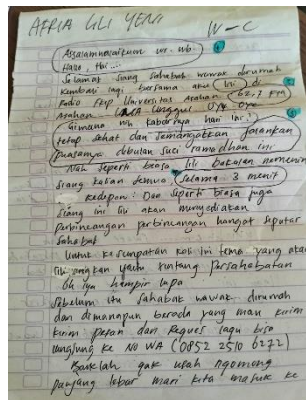 AFRIA LILI YENI
IV - C
Assalamualaikum wr. wb.
Halo, Hai ....
Selamat siang sahabat wawak dirumah
kembali lagi bersama aku Lili di
Radio FKIP Universitas Asahan 107,7 FM
Asahan UNA Unggul Oye Oye
Gimana nih kabarnya hari ini?
tetap sehat dan semangatkan jalankan
puasanya dibulan suci ramadhan ini
Nah seperti biasa Lili bakalan nemenin
siang kalian semua Selama 3 menit
kedepan. Dan seperti biasa juga
siang ini Lili akan menyediakan
perbincangan perbincangan hangat seputar
sahabat
Untuk kesempatan kali ini tema yang akan
Lili yaitu tentang Persahabatan
Oh iya hampir lupa
sebelum itu sahabat wawak dirumah
dan dimanapun berada yang mau kirim
kirim pesan dan reques lagu bisa
langsung ke NO WA (0852 2510 6272)
Baiklah gak usah ngomong
panjang lebar mari kita masuk ke